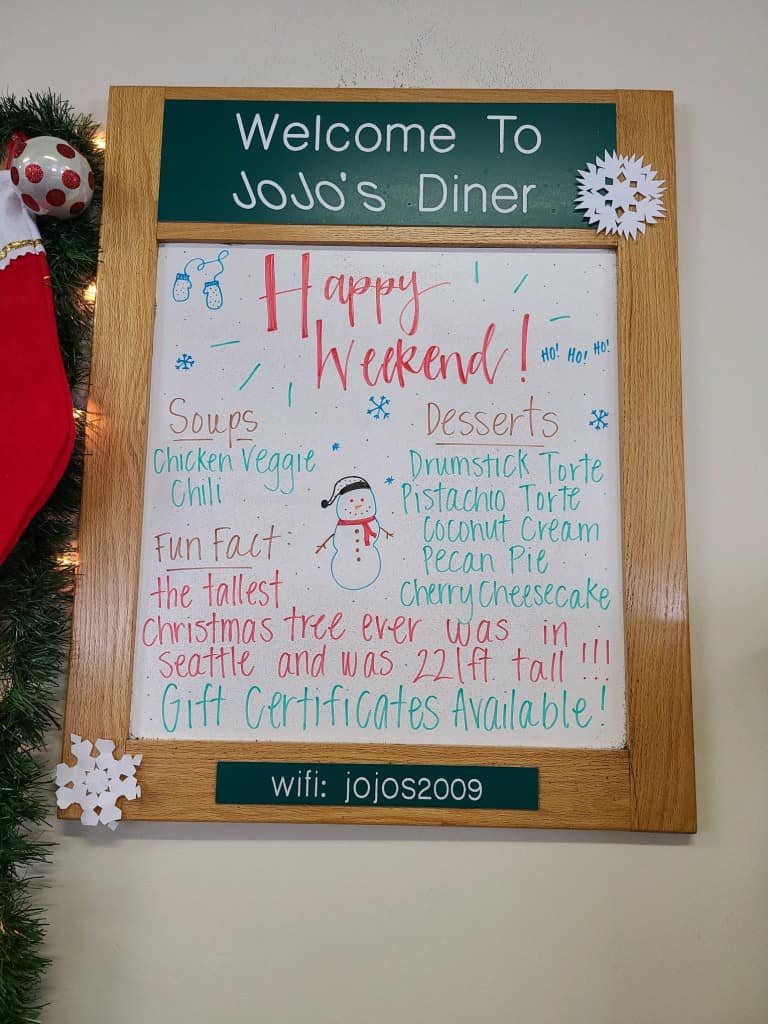 Welcome To
JoJo's Diner
Happy
Weekend!
HO! HO! HO!
Soups
Chicken Veggie
Chili
Desserts
Drumstick Torte
Pistachio Torte
Coconut Cream
Pecan Pie
Cherry Cheesecake
Fun Fact:
the tallest
Christmas tree ever was in
seattle and was 221ft tall!!!
Gift Certificates Available!
wifi: jojos2009